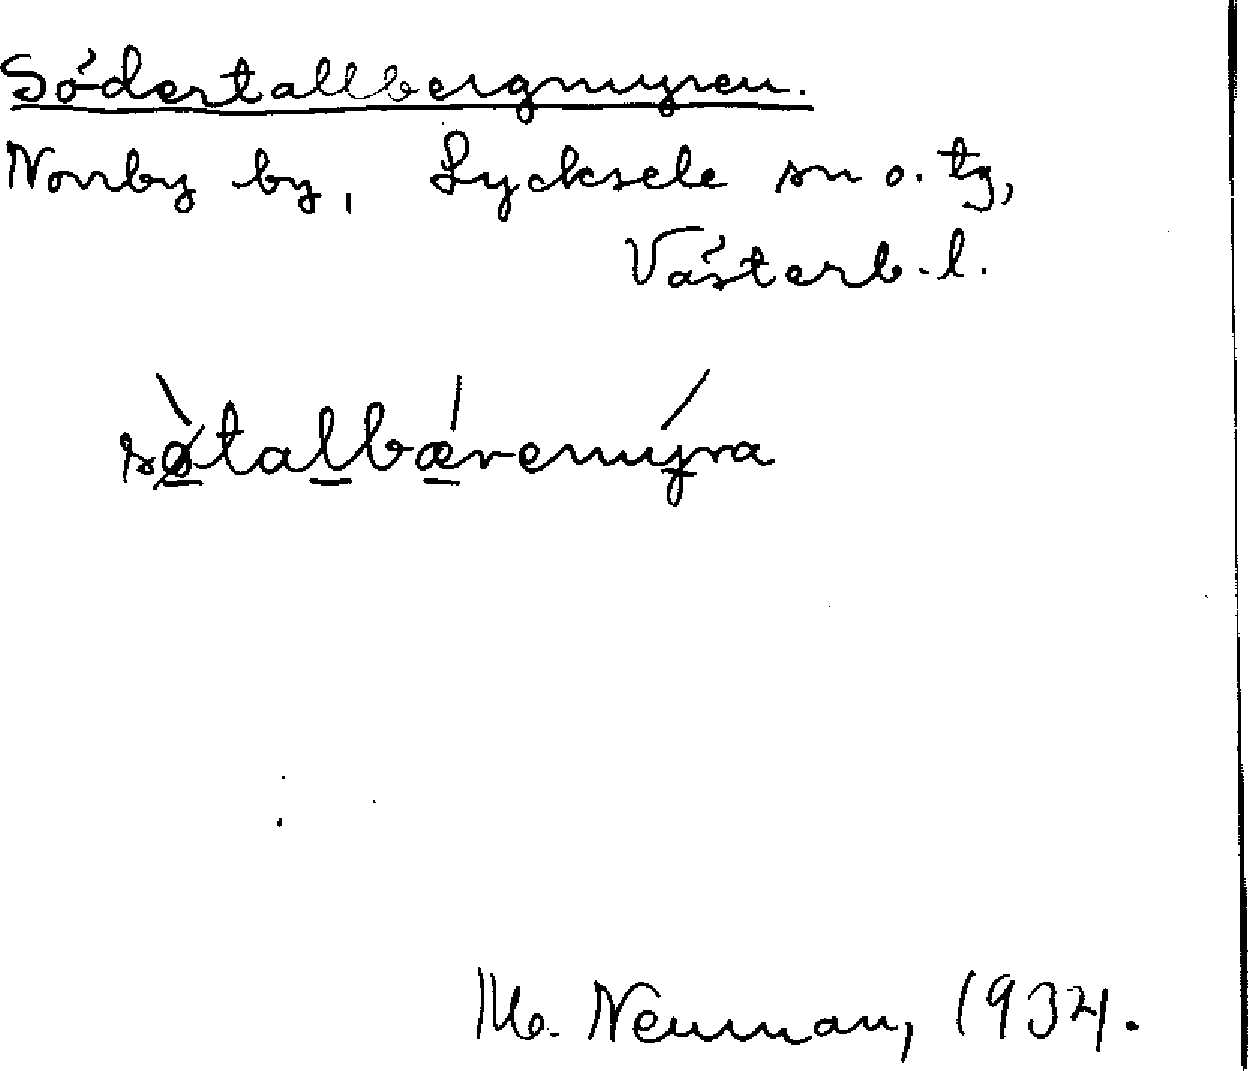 Södertallbergmyren.
Norrby by, Lycksele sn o. tg,
Västerb. l.
søtalbæremyra
M. Neuman, 1934.